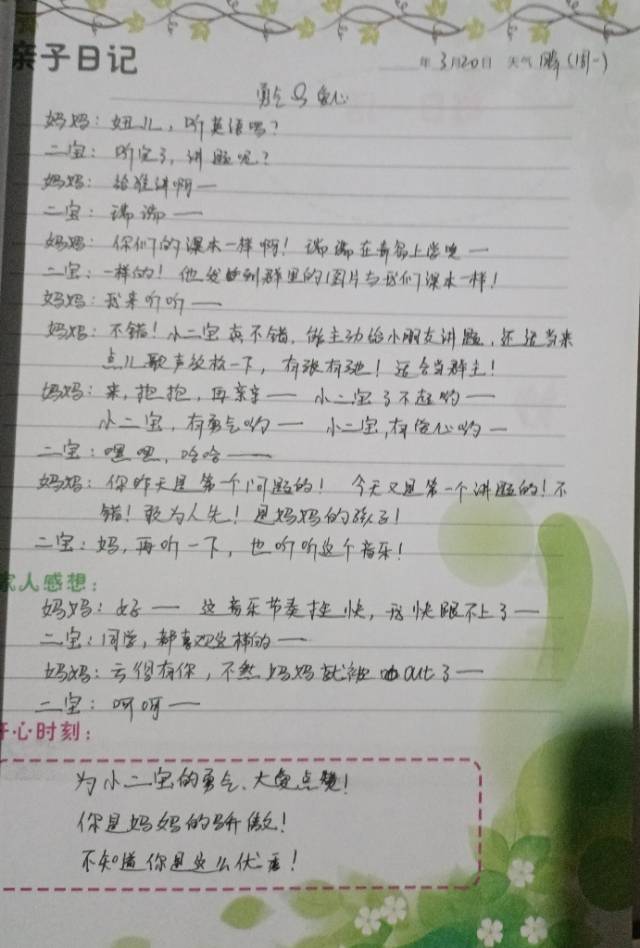 亲子日记
年 3月20日 天气 晴(周一)
勇气与爱心
妈妈: 妞儿, 听英语吗?
二宝: 听完了, 讲题呢?
妈妈: 给谁讲啊——
二宝: 瑞瑞——
妈妈: 你们的课本一样啊! 瑞瑞在青岛上学呢——
二宝: 一样的! 他发到群里的图片与我们课本一样!
妈妈: 我来听听——
妈妈: 不错! 小二宝真不错, 能主动给小朋友讲题, 还
点儿歌声放松一下, 有张有弛! 适合当群主!
妈妈: 来, 抱抱, 再亲亲—— 小二宝了不起哟——
小二宝, 有勇气哟—— 小二宝, 有信心哟——
二宝: 嘿嘿, 哈哈——
妈妈: 你昨天是第一个问题的! 今天又是第一个讲题的! 不
错! 敢为人先! 是妈妈的孩子!
二宝: 妈, 再听一下, 也听听这个音乐!
家人感想:
妈妈: 好—— 这音乐节奏挺快, 我快跟不上了——
二宝: 同学, 都喜欢这样的——
妈妈: 亏得有你, 不然妈妈就被out了——
二宝: 呵呵——
开心时刻:
为小二宝的勇气、大爱点赞!
你是妈妈的骄傲!
不知道你是这么优秀!